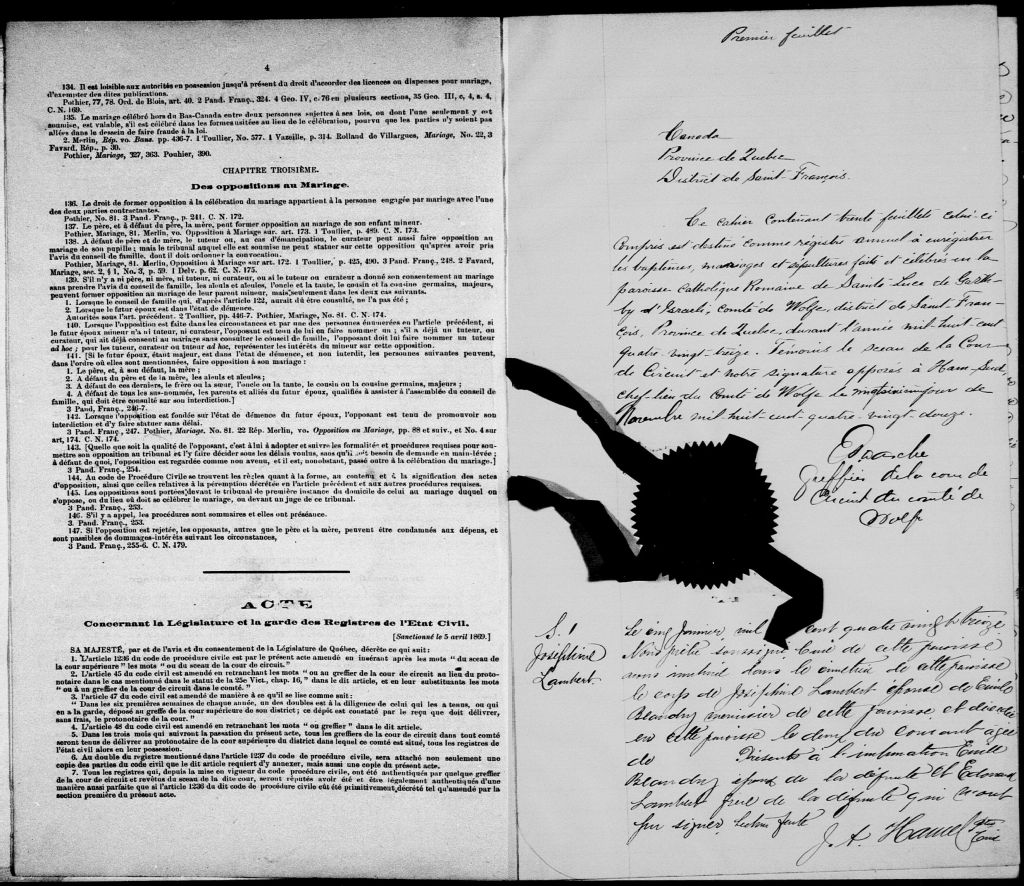 4
134. Il est loisible aux autorités en possession jusqu'à présent du droit d'accorder des licences ou dispenses pour mariage,
d'exempter des dites publications.
Pothier, 77, 78. Ord. de Blois, art. 40. 2 Pand. Franç., 324. 4 Geo. IV, c. 76 en plusieurs sections, 35 Geo. III, c, 4, s. 4,
C. N. 169.
135. Le mariage célébré hors du Bas-Canada entre deux personnes sujettes à ses lois, ou dont l'une seulement y est
soumise, est valable, s'il est célébré dans les formes usitées au lieu de la célébration, pourvu que les parties n'y soient pas
allées dans le dessein de faire fraude à la loi.
2. Merlin, Rép. vo. Bans. pp. 436-7. 1 Toullier, No. 577. 1 Vazeille, p. 314. Rolland de Villargues, Mariage, No. 22, 3
Favard, Rép., p. 30.
Pothier, Mariage, 327, 363. Pouhier, 390.
CHAPITRE TROISIÈME.
Des oppositions au Mariage.
136. Le droit de former opposition à la célébration du mariage appartient à la personne engagée par mariage avec l'une
des deux parties contractantes.
Pothier, No. 81. 3 Pand. Franç., p. 241. C. N. 172.
137. Le père, et à défaut du père, la mère, peut former opposition au mariage de son enfant mineur.
Pothier, Mariage, 81. Merlin, vo. Opposition à Mariage sur. art. 173. 1 Toullier, v. 489. C. N. 173.
138. A défaut de père et de mère, le tuteur ou, au cas d'émancipation, le curateur peut aussi faire opposition au
mariage de son pupille; mais le tribunal auquel elle est soumise ne peut statuer sur cette opposition qu'après avoir pris
l'avis du conseil de famille, dont il doit ordonner la convocation.
Pothier, Mariage, 81. Merlin, Opposition à Mariage sur art. 172. 1 Toullier, p. 425, 490. 3 Pand. Franç., 248. 2 Favard,
Mariage, sec. 2, § 1, No. 3, p. 59. 1 Delv. p. 62. C. N. 175.
139. S'il n'y a ni père, ni mère, ni tuteur, ni curateur, ou si le tuteur ou curateur a donné son consentement au mariage
sans prendre l'avis du conseil de famille, les aïeuls et aïeules, l'oncle et la tante, le cousin et la cousine germains, majeurs,
peuvent former opposition au mariage de leur parent mineur, mais seulement dans les deux cas suivants.
1. Lorsque le conseil de famille qui, d'après l'article 122, aurait dû être consulté, ne l'a pas été;
2. Lorsque le futur époux est dans l'état de démence.
Autorités sous l'art. précédent. 2 Toullier, pp. 446-7. Pothier, Mariage, No. 81. C. N. 174.
140. Lorsque l'opposition est faite dans les circonstances et par une des personnes énumérées en l'article précédent, si
le futur époux mineur n'a ni tuteur, ni curateur, l'opposant est tenu de lui en faire nommer un; s'il a déjà un tuteur, ou
curateur, qui ait déjà consenti au mariage sans consulter le conseil de famille, l'opposant doit lui faire nommer un tuteur
ad hoc; pour les tuteur, curateur ou tuteur ad hoc, représenter les intérêts du mineur sur cette opposition.
141. [Si le futur époux, étant majeur, est dans l'état de démence, et non interdit, les personnes suivantes peuvent,
dans l'ordre où elles sont mentionnées, faire opposition à son mariage:
1. Le père, et, à son défaut, la mère;
2. A défaut du père et de la mère, les aïeuls et aïeules;
3. A défaut de ces derniers, le frère ou la sœur, l'oncle ou la tante, le cousin ou la cousine germains, majeurs;
4. A défaut de tous les sus-nommés, les parents et alliés du futur époux, qualifiés à assister à l'assemblée du conseil de
famille, qui doit être consulté sur son interdiction.]
3 Pand. Franç., 246-7.
142. Lorsque l'opposition est fondée sur l'état de démence du futur époux, l'opposant est tenu de promouvoir son
interdiction et d'y faire statuer sans délai.
3 Pand. Franç., 247. Pothier, Mariage. No. 81. 22 Rép. Merlin, vo. Opposition au Mariage, pp. 88 et suiv., et No. 4 sur
art, 174. C. N. 174.
143. [Quelle que soit la qualité de l'opposant, c'est à lui à adopter et suivre les formalités et procédures requises pour soumettre son opposition au tribunal et l'y faire décider sous les délais voulus, sans qu'il soit besoin de demande en main-lévée;
à défaut de quoi, l'opposition est regardée comme non avenu, et il est, nonobstant, passé outre à la célébration du mariage.]
3 Pand. Franç., 254.
144. Au code de Procédure Civile se trouvent les règles quant à la forme, au contenu et à la signification des actes
d'opposition, ainsi que celles relatives à la péremption décrétée en l'article précédent et aux autres procédures requises.
145. Les oppositions sont portées devant le tribunal de première instance du domicile de celui au mariage duquel on
s'oppose, ou du lieu où doit se célébrer le mariage, ou devant un juge de ce tribunal.
3 Pand. Franç., 253.
146. S'il y a appel, les procédures sont sommaires et elles ont préséance.
3. Pand. Franç., 253.
147. Si l'opposition est rejetée, les opposants, autres que le père et la mère, peuvent être condamnés aux dépens, et
sont passibles de dommages-intérêts suivant les circonstances,
3 Pand. Franç., 255-6. C. N. 179.
ACTE
Concernant la Législature et la garde des Registres de l'Etat Civil.
[Sanctionné le 5 avril 1869.]
SA MAJESTÉ, par et de l'avis et du consentement de la Législature de Québec, décrète ce qui suit:
1. L'article 1236 du code de procédure civile est par le présent acte amendé en insérant après les mots "du sceau de
la cour supérieure" les mots "ou du sceau de la cour de circuit."
2. L'article 45 du code civil est amendé en retranchant les mots "ou au greffier de la cour de circuit au lieu du protonotaire dans le cas mentionné dans le statut de la 25e Vict., chap. 16," dans le dit article, et en leur substituants les mots
"ou à un greffier de la cour de circuit dans le comté."
3. L'article 47 du code civil est amendé de manière à ce qu'il se lise comme suit:
"Dans les six premières semaines de chaque année, un des doubles est à la diligence de celui qui les a tenus, ou qui
en a la garde, déposé au greffe de la cour supérieure de son district; ce dépôt est constaté par le reçu que doit délivrer,
sans frais, le protonotaire de la cour."
4. L'article 48 du code civil est amendé en retranchant les mots "ou greffier" dans le dit article,
5. Dans les trois mois qui suivront la passation du présent acte, tous les greffiers de la cour de circuit dans tout comté
seront tenus de délivrer au protonotaire de la cour supérieure du district dans lequel ce comté est situé, tous les registres de
l'état civil alors en leur possession.
6. Au double du registre mentionné dans l'article 1237 du code de procédure civile, sera attaché non seulement une
copie des parties du code civil que le dit article requiert d'y annexer, mais aussi une copie du présent acte.
7. Tous les registres qui, depuis la mise en vigueur du code de procédure civile, ont été authentiqués par quelque greffier
de la cour de circuit et revêtus du sceau de la dite cour, seront réputés avoir été et être légalement authentiqués d'une
manière aussi parfaite que si l'article 1236 du dit code de procédure civile eût été primitivement décrété tel qu'amendé par la
section première du présent acte.
Premier feuillet
Canada
Province de Quebec
District de Saint-François.
Ce cahier contenant trente feuillets celui-ci
compris est destiné comme registre annuel à enregistrer
les baptêmes, mariages et sépultures faits et célébrés en la
paroisse Catholique Romaine de Sainte Luce de Garth-
by d'Israëli, comté de Wolfe, district de Saint-Fran-
çois, Province de Quebec, durant l'année mil-huit-cent
quatre-vingt-treize. Témoins le sceau de la Cour
de Circuit et notre signature apposés à Ham-Sud
chef lieu du Comté de Wolfe le jour de
Novembre mil-huit-cent-quatre-vingt-douze.
Greffier de la cour de
Circuit du comté de
Wolfe
S. 1
Joséphine
Lambert
Le cinq Janvier mil cent quatre vingt treize
Nous prêtre soussigné Curé de cette paroisse
avons inhumé dans le cimetière de cette paroisse
le corps de Joséphine Lambert épouse de Emile
Blandry menuisier de cette paroisse et décédée
en cette paroisse le deux du courant agée
de Présents à l'inhumation Emile
Blandry époux de la défunte et Edouard
Lambert frère de la défunte qui n'ont
pu signer, lecture faite
J. A. Hamel Ptre
Curé